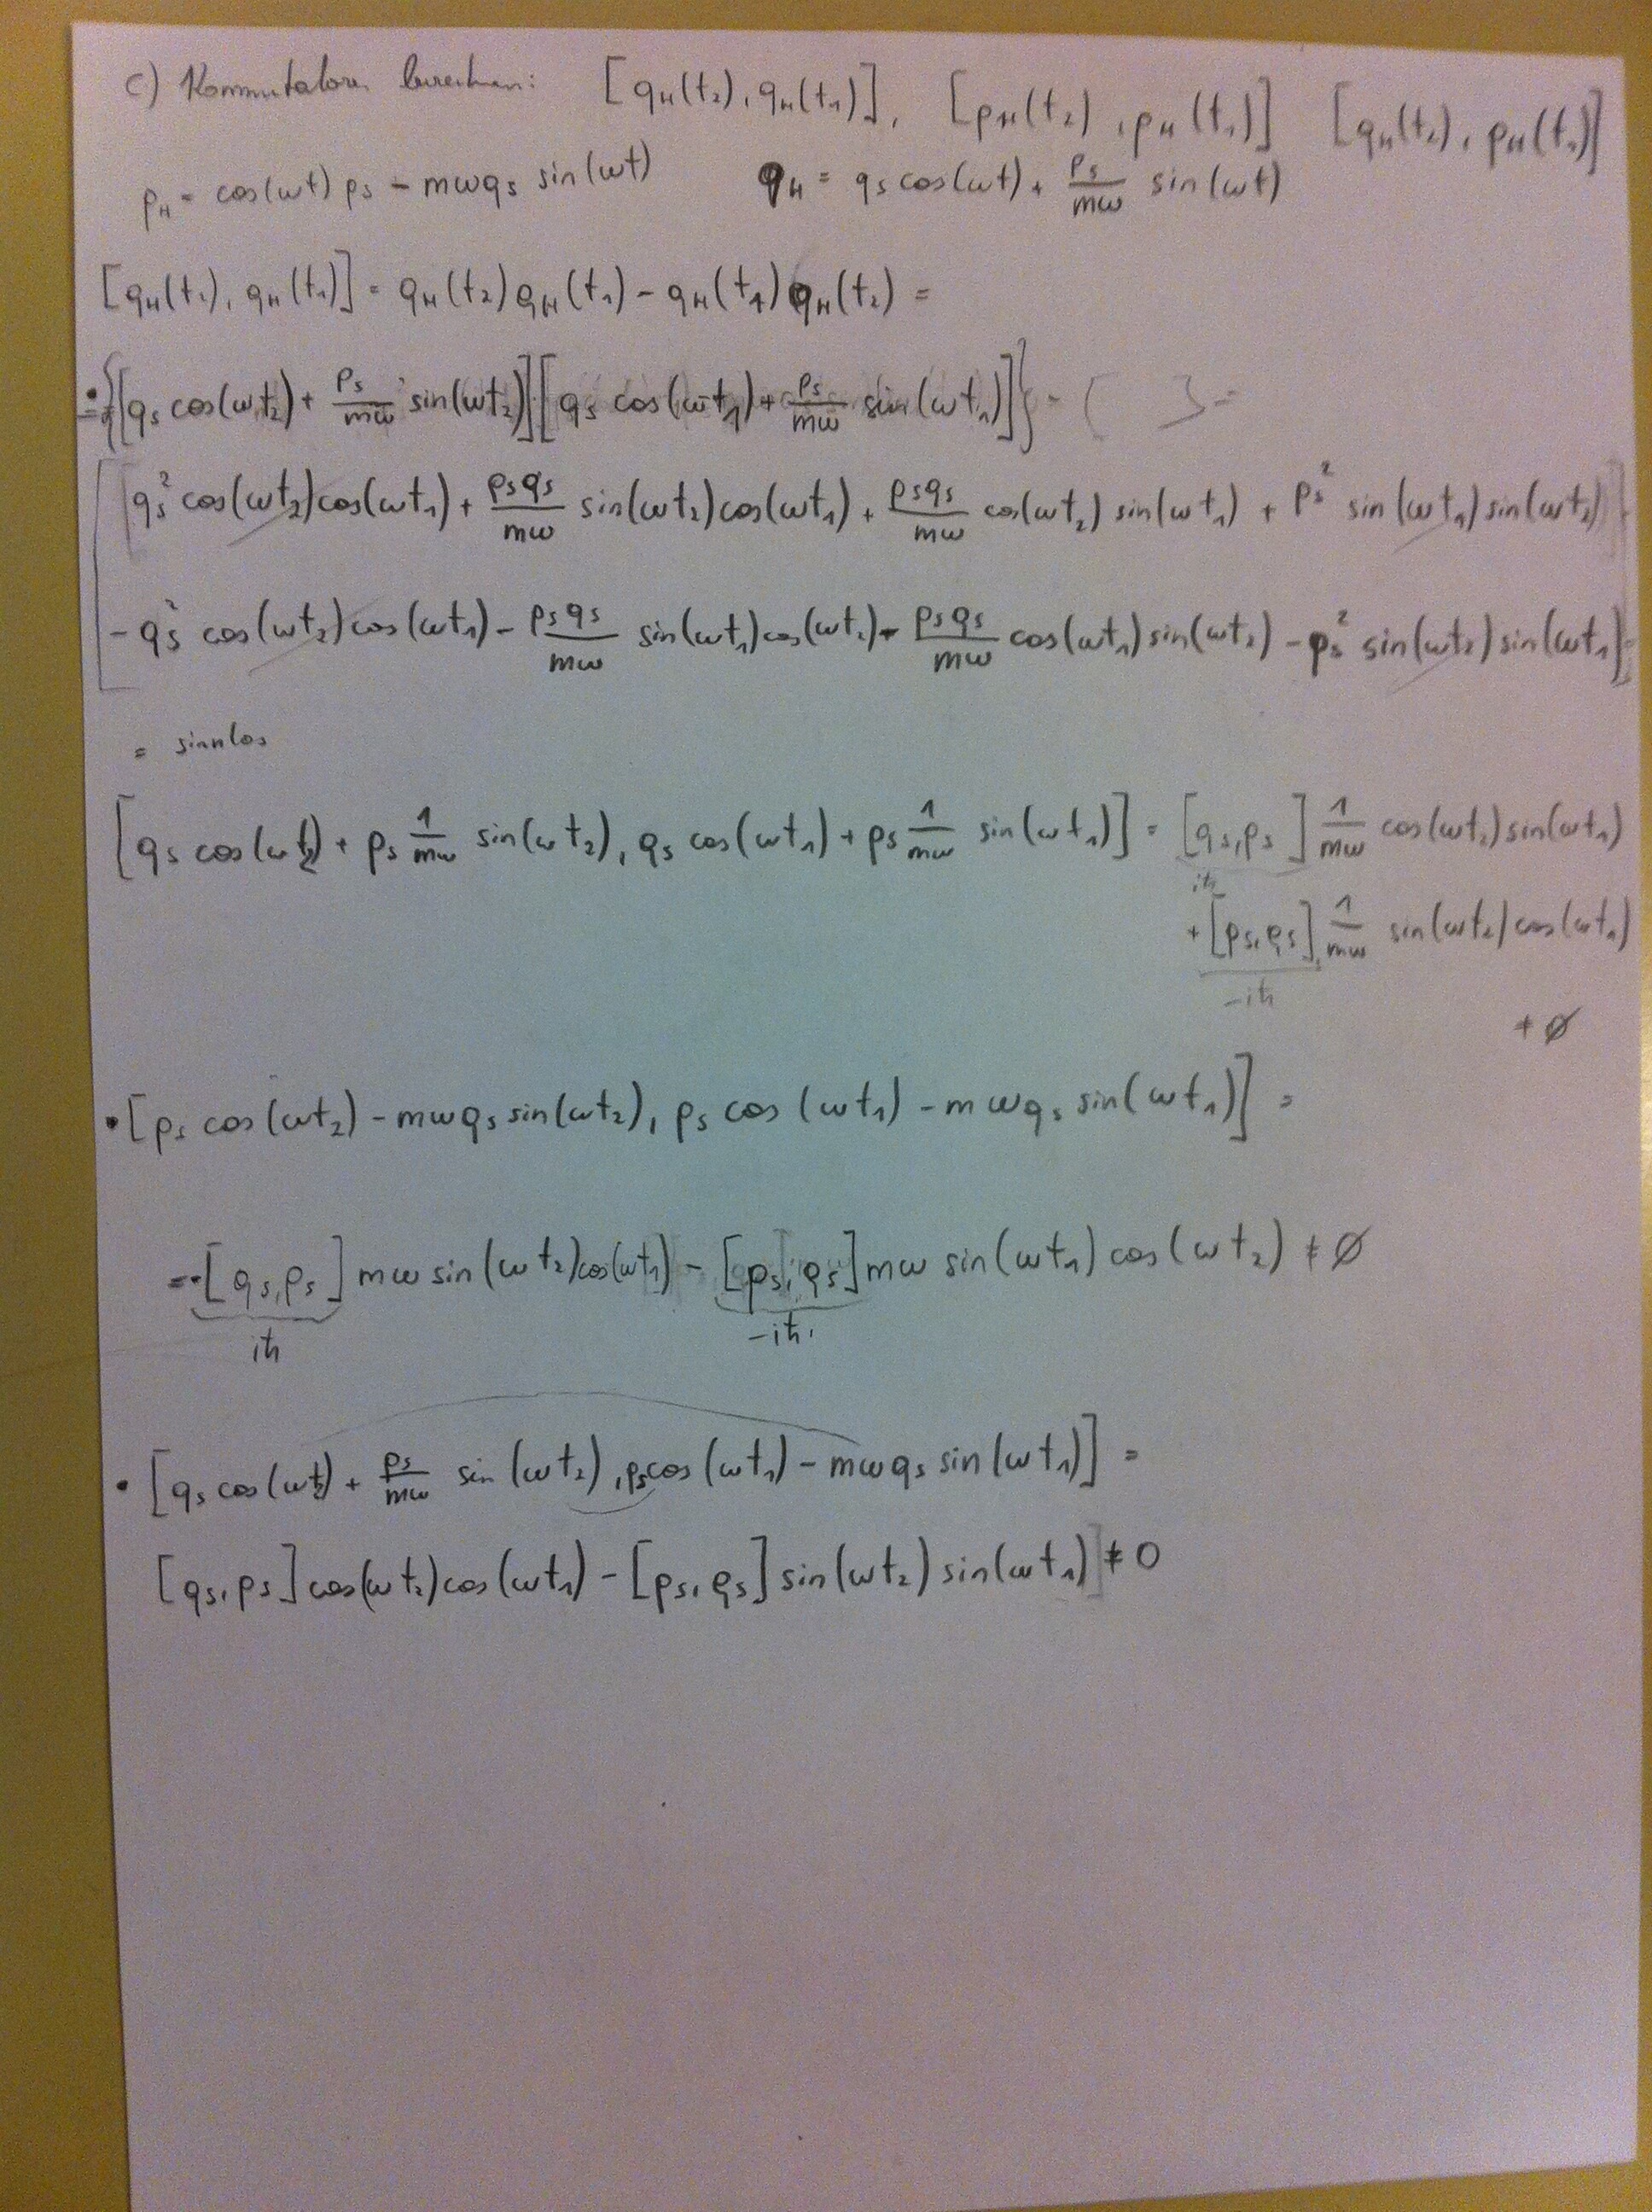 c) Kommutatoren berechnen: [q_H(t₂), q_H(t₁)], [p_H(t₂), p_H(t₁)] [q_H(t₂), p_H(t₁)]
p_H = cos(ωt) p_S − mωq_S sin(ωt) q_H = q_S cos(ωt) + p_S/mω sin(ωt)
[q_H(t₂), q_H(t₁)] = q_H(t₂) q_H(t₁) − q_H(t₁) q_H(t₂) =
• = {[q_S cos(ωt₂) + p_S/mω sin(ωt₂)][q_S cos(ωt₁) + p_S/mω sin(ωt₁)]} − { } =
[[q_S² cos(ωt₂)cos(ωt₁) + p_S q_S/mω sin(ωt₂)cos(ωt₁) + p_S q_S/mω cos(ωt₂) sin(ωt₁) + p_S² sin(ωt₁) sin(ωt₂)]
− q_S² cos(ωt₂)cos(ωt₁) − p_S q_S/mω sin(ωt₁)cos(ωt₂) − p_S q_S/mω cos(ωt₁) sin(ωt₂) − p_S² sin(ωt₂) sin(ωt₁)] =
= sinnlos
[q_S cos(ωt₂) + p_S 1/mω sin(ωt₂), q_S cos(ωt₁) + p_S 1/mω sin(ωt₁)] = [q_S, p_S] 1/mω cos(ωt₂) sin(ωt₁)
iħ
+ [p_S, q_S] 1/mω sin(ωt₂) cos(ωt₁)
−iħ
≠ ∅
• [p_S cos(ωt₂) − mωq_S sin(ωt₂), p_S cos(ωt₁) − mωq_S sin(ωt₁)] =
= −[q_S, p_S] mω sin(ωt₂)cos(ωt₁) − [p_S, q_S] mω sin(ωt₁) cos(ωt₂) ≠ ∅
iħ −iħ
• [q_S cos(ωt₂) + p_S/mω sin(ωt₂), p_S cos(ωt₁) − mωq_S sin(ωt₁)] =
[q_S, p_S] cos(ωt₂) cos(ωt₁) − [p_S, q_S] sin(ωt₂) sin(ωt₁)] ≠ 0